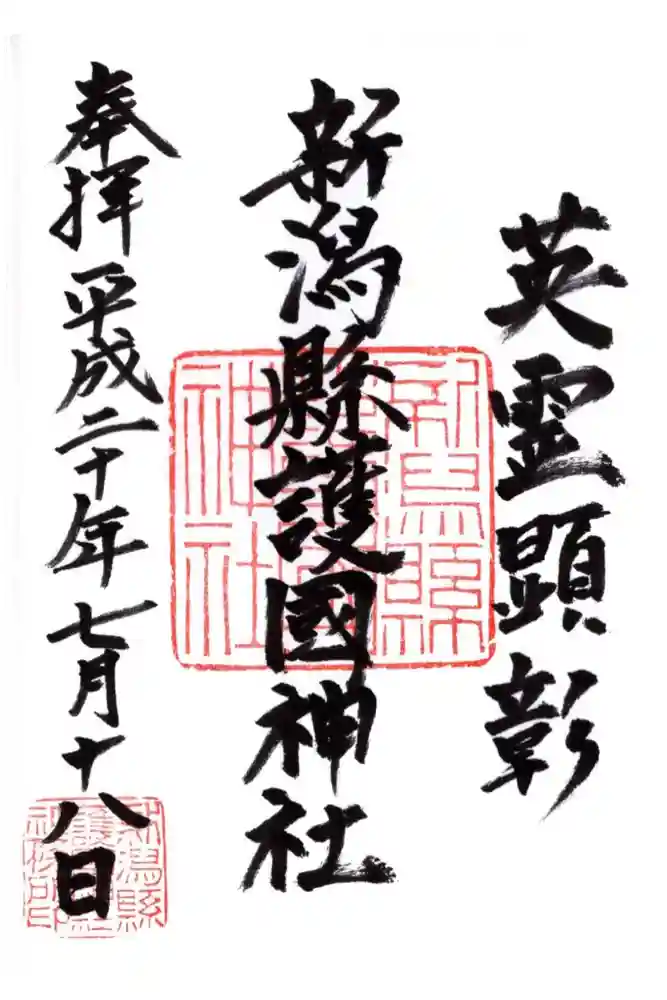 英霊顕彰
新潟縣護國神社
新潟縣護國神社
奉拝 平成二十年七月十八日
新潟縣護國神社社務所印